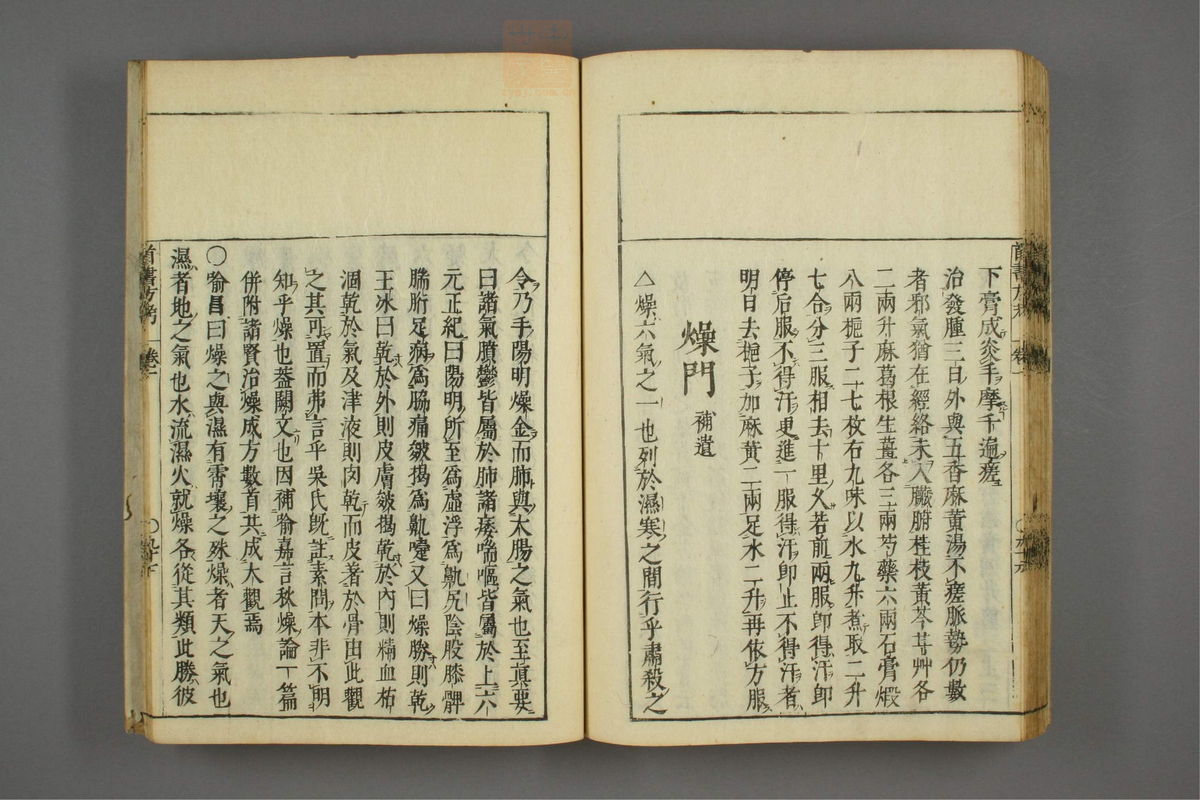 下膏成炎手摩千遍瘥
治發腫三日外與五香麻黃湯不瘥脈勢仍數
者邪氣猶在經絡未入臟腑桂枝黃芩甘艸各
二兩升麻葛根生薑各三兩芍藥六兩石膏煆
八兩梔子二七枚右九味以水九升煮取二升
七合分三服相去十里久若前兩服卽得汗卽
停后服不得汗更進一服得汗卽止不得汗者
明日去梔子加麻黃二兩足水二升再依方服
燥門 補遺
△燥六氣之一也列於濕寒之間行乎肅殺之
令乃手陽明燥金而肺與大腸之氣也至真要
曰諸氣膹鬱皆屬於肺諸痿喘嘔皆屬於上六
元正紀曰陽明所至爲虛浮爲鼽尻陰股膝髀
腨胻足病爲脇痛皴揭爲鼽嚏又曰燥勝則乾
王冰曰乾於外則皮膚皴揭乾於內則精血枯
涸乾於氣及津液則肉乾而皮著於骨由此觀
之其可置而弗言乎吳氏旣註素問本非不明
知乎燥也蓋闕文也因補喻嘉言秋燥論一篇
併附諸賢治燥成方數首共成大觀焉
〇喻昌曰燥之與濕有霄壤之殊燥者天之氣也
濕者地之氣也水流濕火就燥各從其類此勝彼
首書方考 卷二